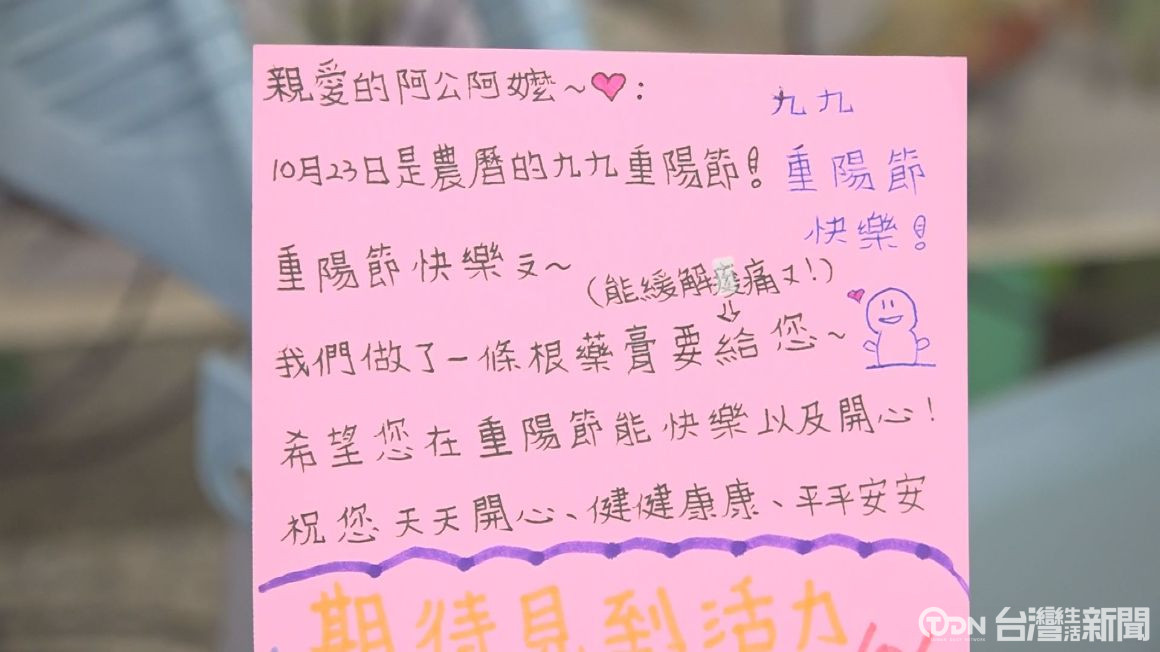 親愛的阿公阿嬤~♥:
九九
10月23日是農曆的九九重陽節!
重陽節
快樂!
重陽節快樂ㄡ~
(能緩解痠痛ㄡ!)
我們做了一條根藥膏要給您~
希望您在重陽節能快樂以及開心!
祝您天天開心、健健康康、平平安安
期待見到活力
TDN 台灣生活新聞